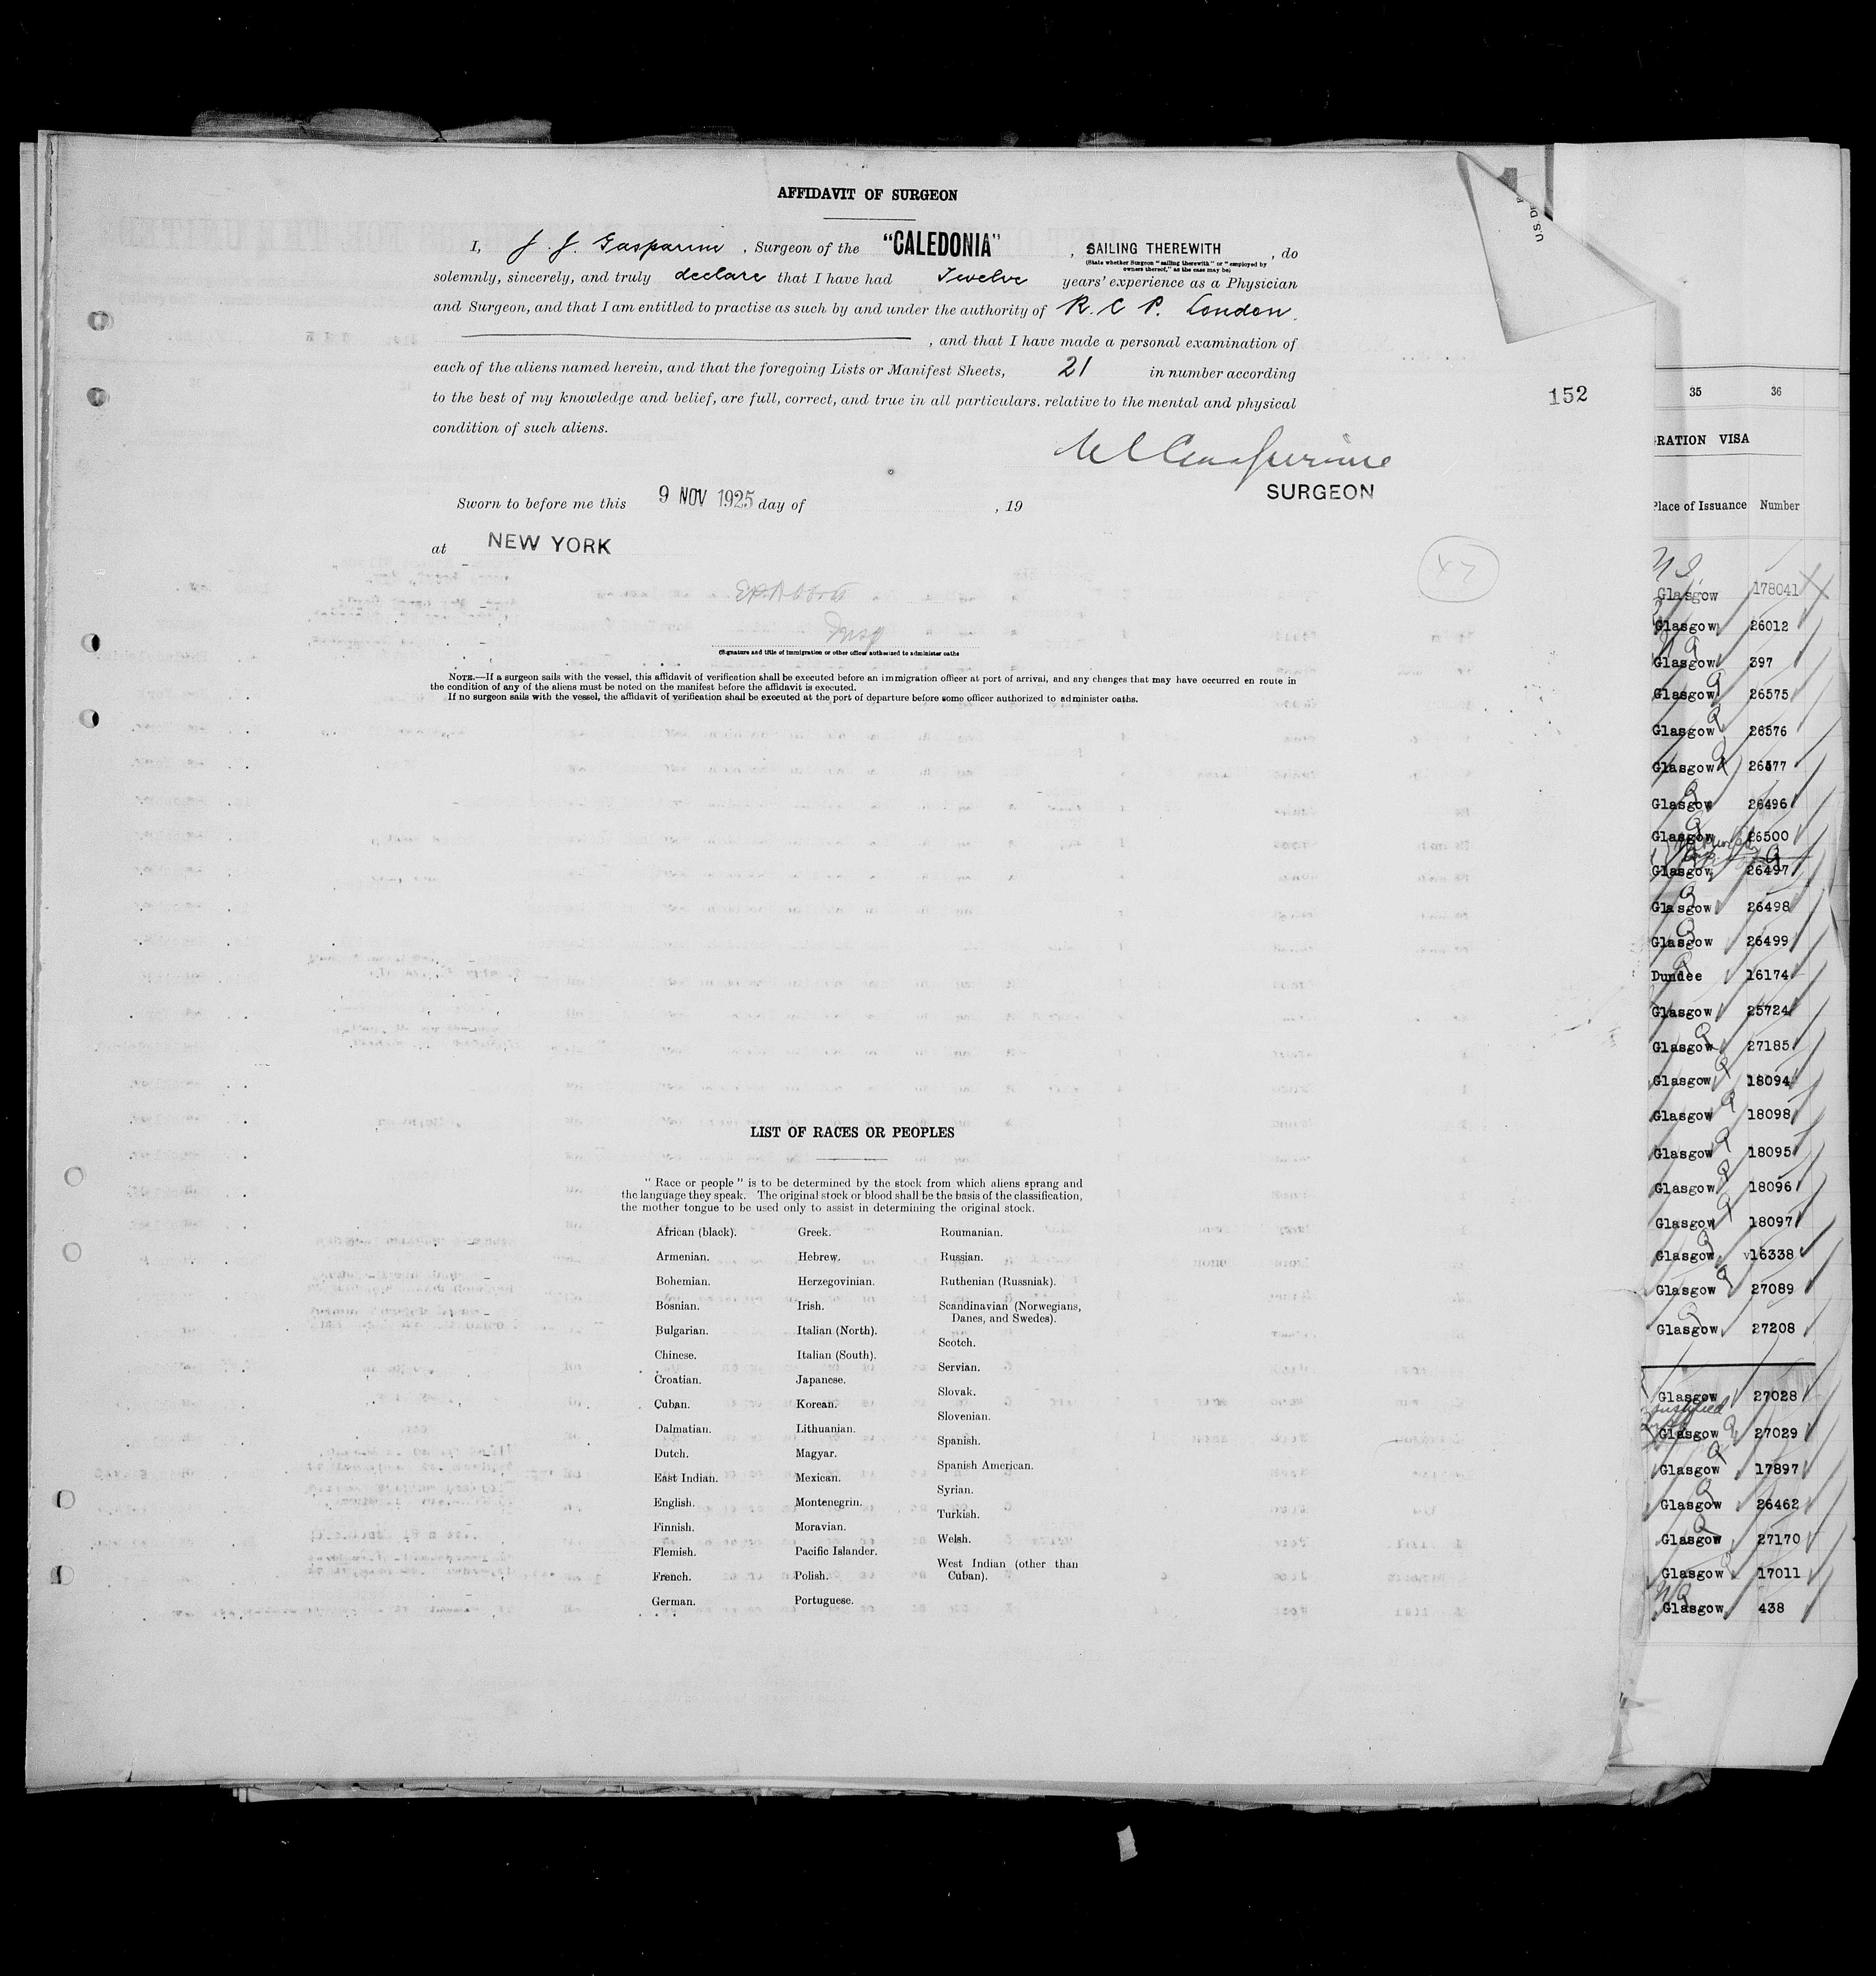 AFFIDAVIT OF SURGEON
I, J. J. Gasparine, Surgeon of the "CALEDONIA", SAILING THEREWITH, do
(State whether Surgeon "sailing therewith" or "employed by
owners thereof," as the case may be)
solemnly, sincerely, and truly declare that I have had Twelve years' experience as a Physician
and Surgeon, and that I am entitled to practise as such by and under the authority of R. C. P. London.
, and that I have made a personal examination of
each of the aliens named herein, and that the foregoing Lists or Manifest Sheets, 21 in number according
to the best of my knowledge and belief, are full, correct, and true in all particulars. relative to the mental and physical
condition of such aliens.
SURGEON
Sworn to before me this 9 NOV 1925 day of , 19
at NEW YORK
47
Insp
(Signature and title of immigration or other officer authorized to administer oaths
NOTE.—If a surgeon sails with the vessel, this affidavit of verification shall be executed before an immigration officer at port of arrival, and any changes that may have occurred en route in
the condition of any of the aliens must be noted on the manifest before the affidavit is executed.
If no surgeon sails with the vessel, the affidavit of verification shall be executed at the port of departure before some officer authorized to administer oaths.
LIST OF RACES OR PEOPLES
"Race or people" is to be determined by the stock from which aliens sprang and
the language they speak. The original stock or blood shall be the basis of the classification,
the mother tongue to be used only to assist in determining the original stock.
African (black).
Armenian.
Bohemian.
Bosnian.
Bulgarian.
Chinese.
Croatian.
Cuban.
Dalmatian.
Dutch.
East Indian.
English.
Finnish.
Flemish.
French.
German.
Greek.
Hebrew.
Herzegovinian.
Irish.
Italian (North).
Italian (South).
Japanese.
Korean.
Lithuanian.
Magyar.
Mexican.
Montenegrin.
Moravian.
Pacific Islander.
Polish.
Portuguese.
Roumanian.
Russian.
Ruthenian (Russniak).
Scandinavian (Norwegians,
Danes, and Swedes).
Scotch.
Servian.
Slovak.
Slovenian.
Spanish.
Spanish American.
Syrian.
Turkish.
Welsh.
West Indian (other than
Cuban).
152
35 36
VISA
Place of Issuance Number
Glasgow 178041
Glasgow 26012
Glasgow 397
Glasgow 26575
Glasgow 26576
Glasgow 26577
Glasgow 26496
Glasgow 26500
Glasgow 26497
Glasgow 26498
Glasgow 26499
Dundee 16174
Glasgow 25724
Glasgow 27185
Glasgow 18094
Glasgow 18098
Glasgow 18095
Glasgow 18096
Glasgow 18097
Glasgow 16338
Glasgow 27089
Glasgow 27208
Glasgow 27028
Glasgow 27029
Glasgow 17897
Glasgow 26462
Glasgow 27170
Glasgow 17011
Glasgow 438